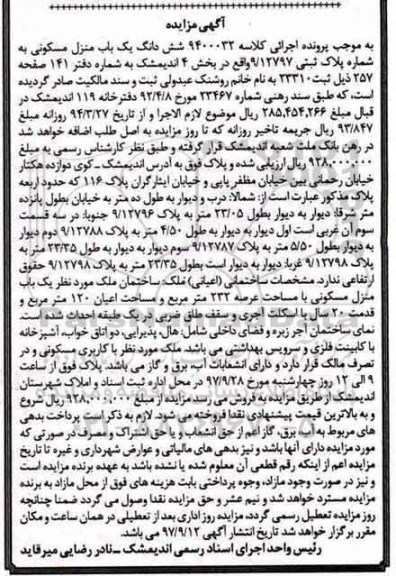 آگهی مزایده
به موجب پرونده اجرائی کلاسه ۹۴۰۰۰۳۲ شش دانگ یک باب منزل مسکونی به
شماره پلاک ثبتی ۹/۱۲۷۹۷واقع در بخش ۴ اندیمشک به شماره دفتر ۱۴۱ صفحه
۲۵۷ ذیل ثبت۲۳۳۱۰ به نام خانم روشنک عبدولی ثبت و سند مالکیت صادر گردیده
است، که طبق سند رهنی شماره ۲۳۴۶۷ مورخ ۹۲/۴/۸ دفترخانه ۱۱۹ اندیمشک در
قبال مبلغ ۲۸۵,۴۵۴,۲۶۶ ریال موضوع لازم الاجرا و از تاریخ ۹۴/۳/۲۷ روزانه مبلغ
۹۳/۸۴۷ ریال جریمه تاخیر روزانه که تا روز مزایده به اصل طلب اضافه خواهد شد
در رهن بانک ملت شعبه اندیمشک قرار گرفته و طبق نظر کارشناس رسمی به مبلغ
۹۲۸,۰۰۰,۰۰۰ ریال ارزیابی شده و پلاک فوق به آدرس اندیمشک ـ کوی دوازده هکتار
خیابان رحمانی بین خیابان مظفر پایی و خیابان ایثارگران پلاک ۱۱۶ که حدود اربعه
پلاک مذکور عبارت است از: شمالا: درب و دیوار به طول ده متر به خیابان بطول پانزده
متر شرقا: دیوار به دیوار بطول ۲۳/۰۵ متر به پلاک ۹/۱۲۷۹۶ جنوبا: در سه قسمت
سوم آن غربی است اول دیوار به دیوار به طول ۴/۵۰ متر به پلاک ۹/۱۲۷۸۸ دوم دیوار
به دیوار بطول ۵/۵۰ متر به پلاک ۹/۱۲۷۸۷ سوم دیوار به دیوار به طول ۲۳/۳۵ متر به
پلاک ۹/۱۲۷۹۸ غربا: دیوار به دیوار است بطول ۲۳/۳۵ متر به پلاک ۹/۱۲۷۹۸ حقوق
ارتفاعی ندارد. مشخصات ساختمانی (اعیانی) ملک: ساختمان ملک مورد نظر یک باب
منزل مسکونی با مساحت عرصه ۲۳۲ متر مربع و مساحت اعیان ۱۲۰ متر مربع و
قدمت ۲۰ سال با اسکلت آجری و سقف طاق ضربی در یک طبقه احداث شده است.
نمای ساختمان آجر زبره و فضای داخلی شامل: هال، پذیرایی، دو اتاق خواب، آشپزخانه
با کابینت فلزی و سرویس بهداشتی می باشد. ملک مورد نظر با کاربری مسکونی و در
تصرف مالک قرار دارد و دارای انشعابات آب، برق و گاز می باشد. پلاک فوق از ساعت
۹ الی ۱۲ روز چهارشنبه مورخ ۹۷/۹/۲۸ در محل اداره ثبت اسناد و املاک شهرستان
اندیمشک از طریق مزایده به فروش می رسد مزایده از مبلغ ۹۲۸,۰۰۰,۰۰۰ ریال شروع
و به بالاترین قیمت پیشنهادی نقدا فروخته می شود. لازم به ذکر است پرداخت بدهی
های مربوط به آب، برق، گاز اعم از حق انشعاب و یا حق اشتراک و مصرف در صورتی که
مورد مزایده دارای آنها باشد و نیز بدهی های مالیاتی و عوارض شهرداری و غیره تا تاریخ
مزایده اعم از اینکه رقم قطعی آن معلوم شده یا نشده باشد به عهده برنده مزایده است
و نیز در صورت وجود مازاد، وجوه پرداختی بابت هزینه های فوق از محل مازاد به برنده
مزایده مسترد خواهد شد و نیم عشر و حق مزایده نقدا وصول می گردد ضمنا چنانچه
روز مزایده تعطیل رسمی گردد، مزایده روز اداری بعد از تعطیلی در همان ساعت و مکان
مقرر برگزار خواهد شد تاریخ انتشار آگهی ۹۷/۹/۱۲ می باشد.
رئیس واحد اجرای اسناد رسمی اندیمشک ـ نادر رضایی میرقاید